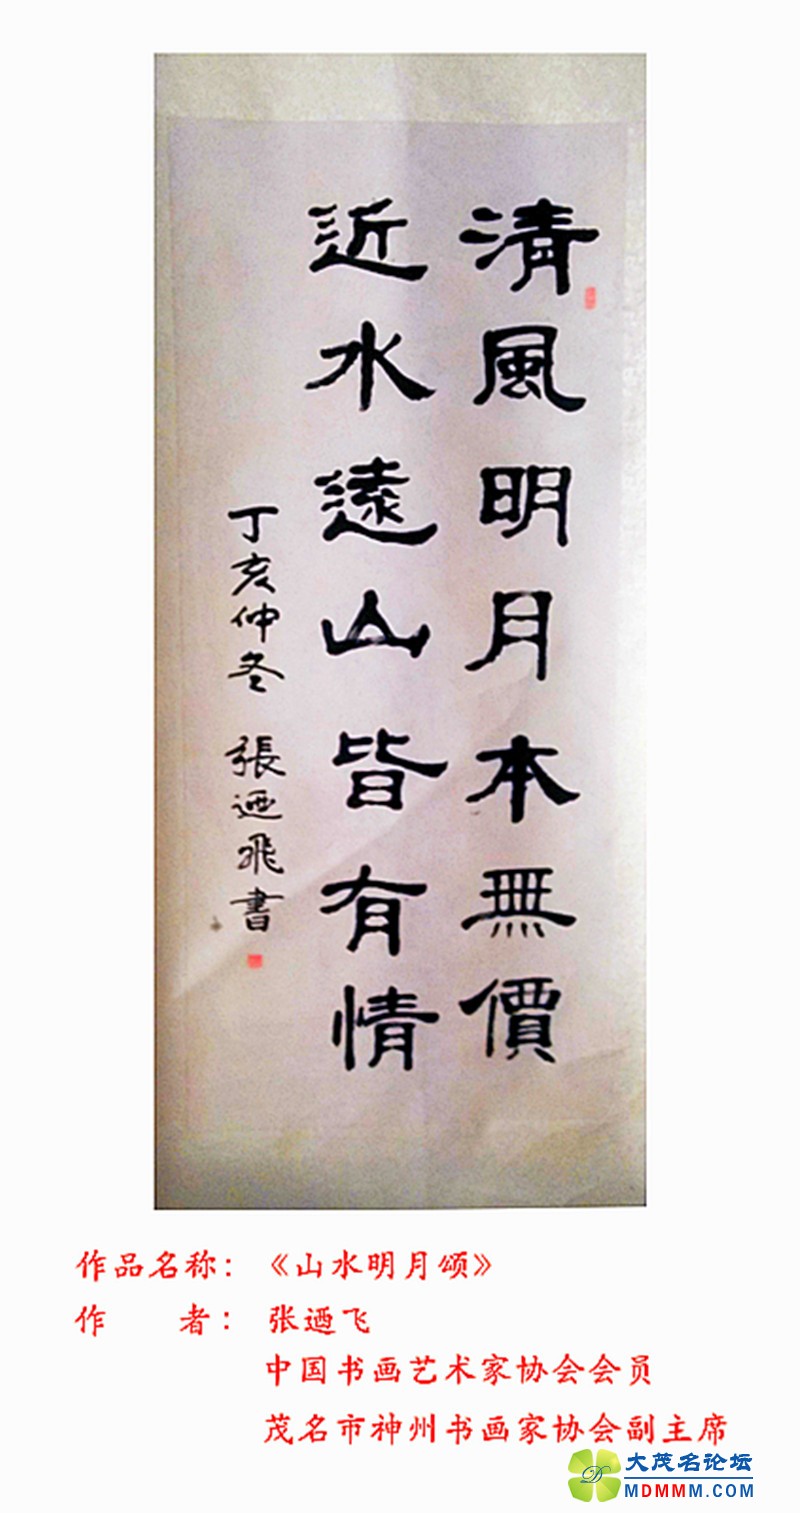 清風明月本無價
近水遠山皆有情
丁亥仲冬 張迺飛書
作品名称：《山水明月颂》
作 者：张迺飞
中国书画艺术家协会会员
茂名市神州书画家协会副主席
大茂名论坛
MDMMM.COM